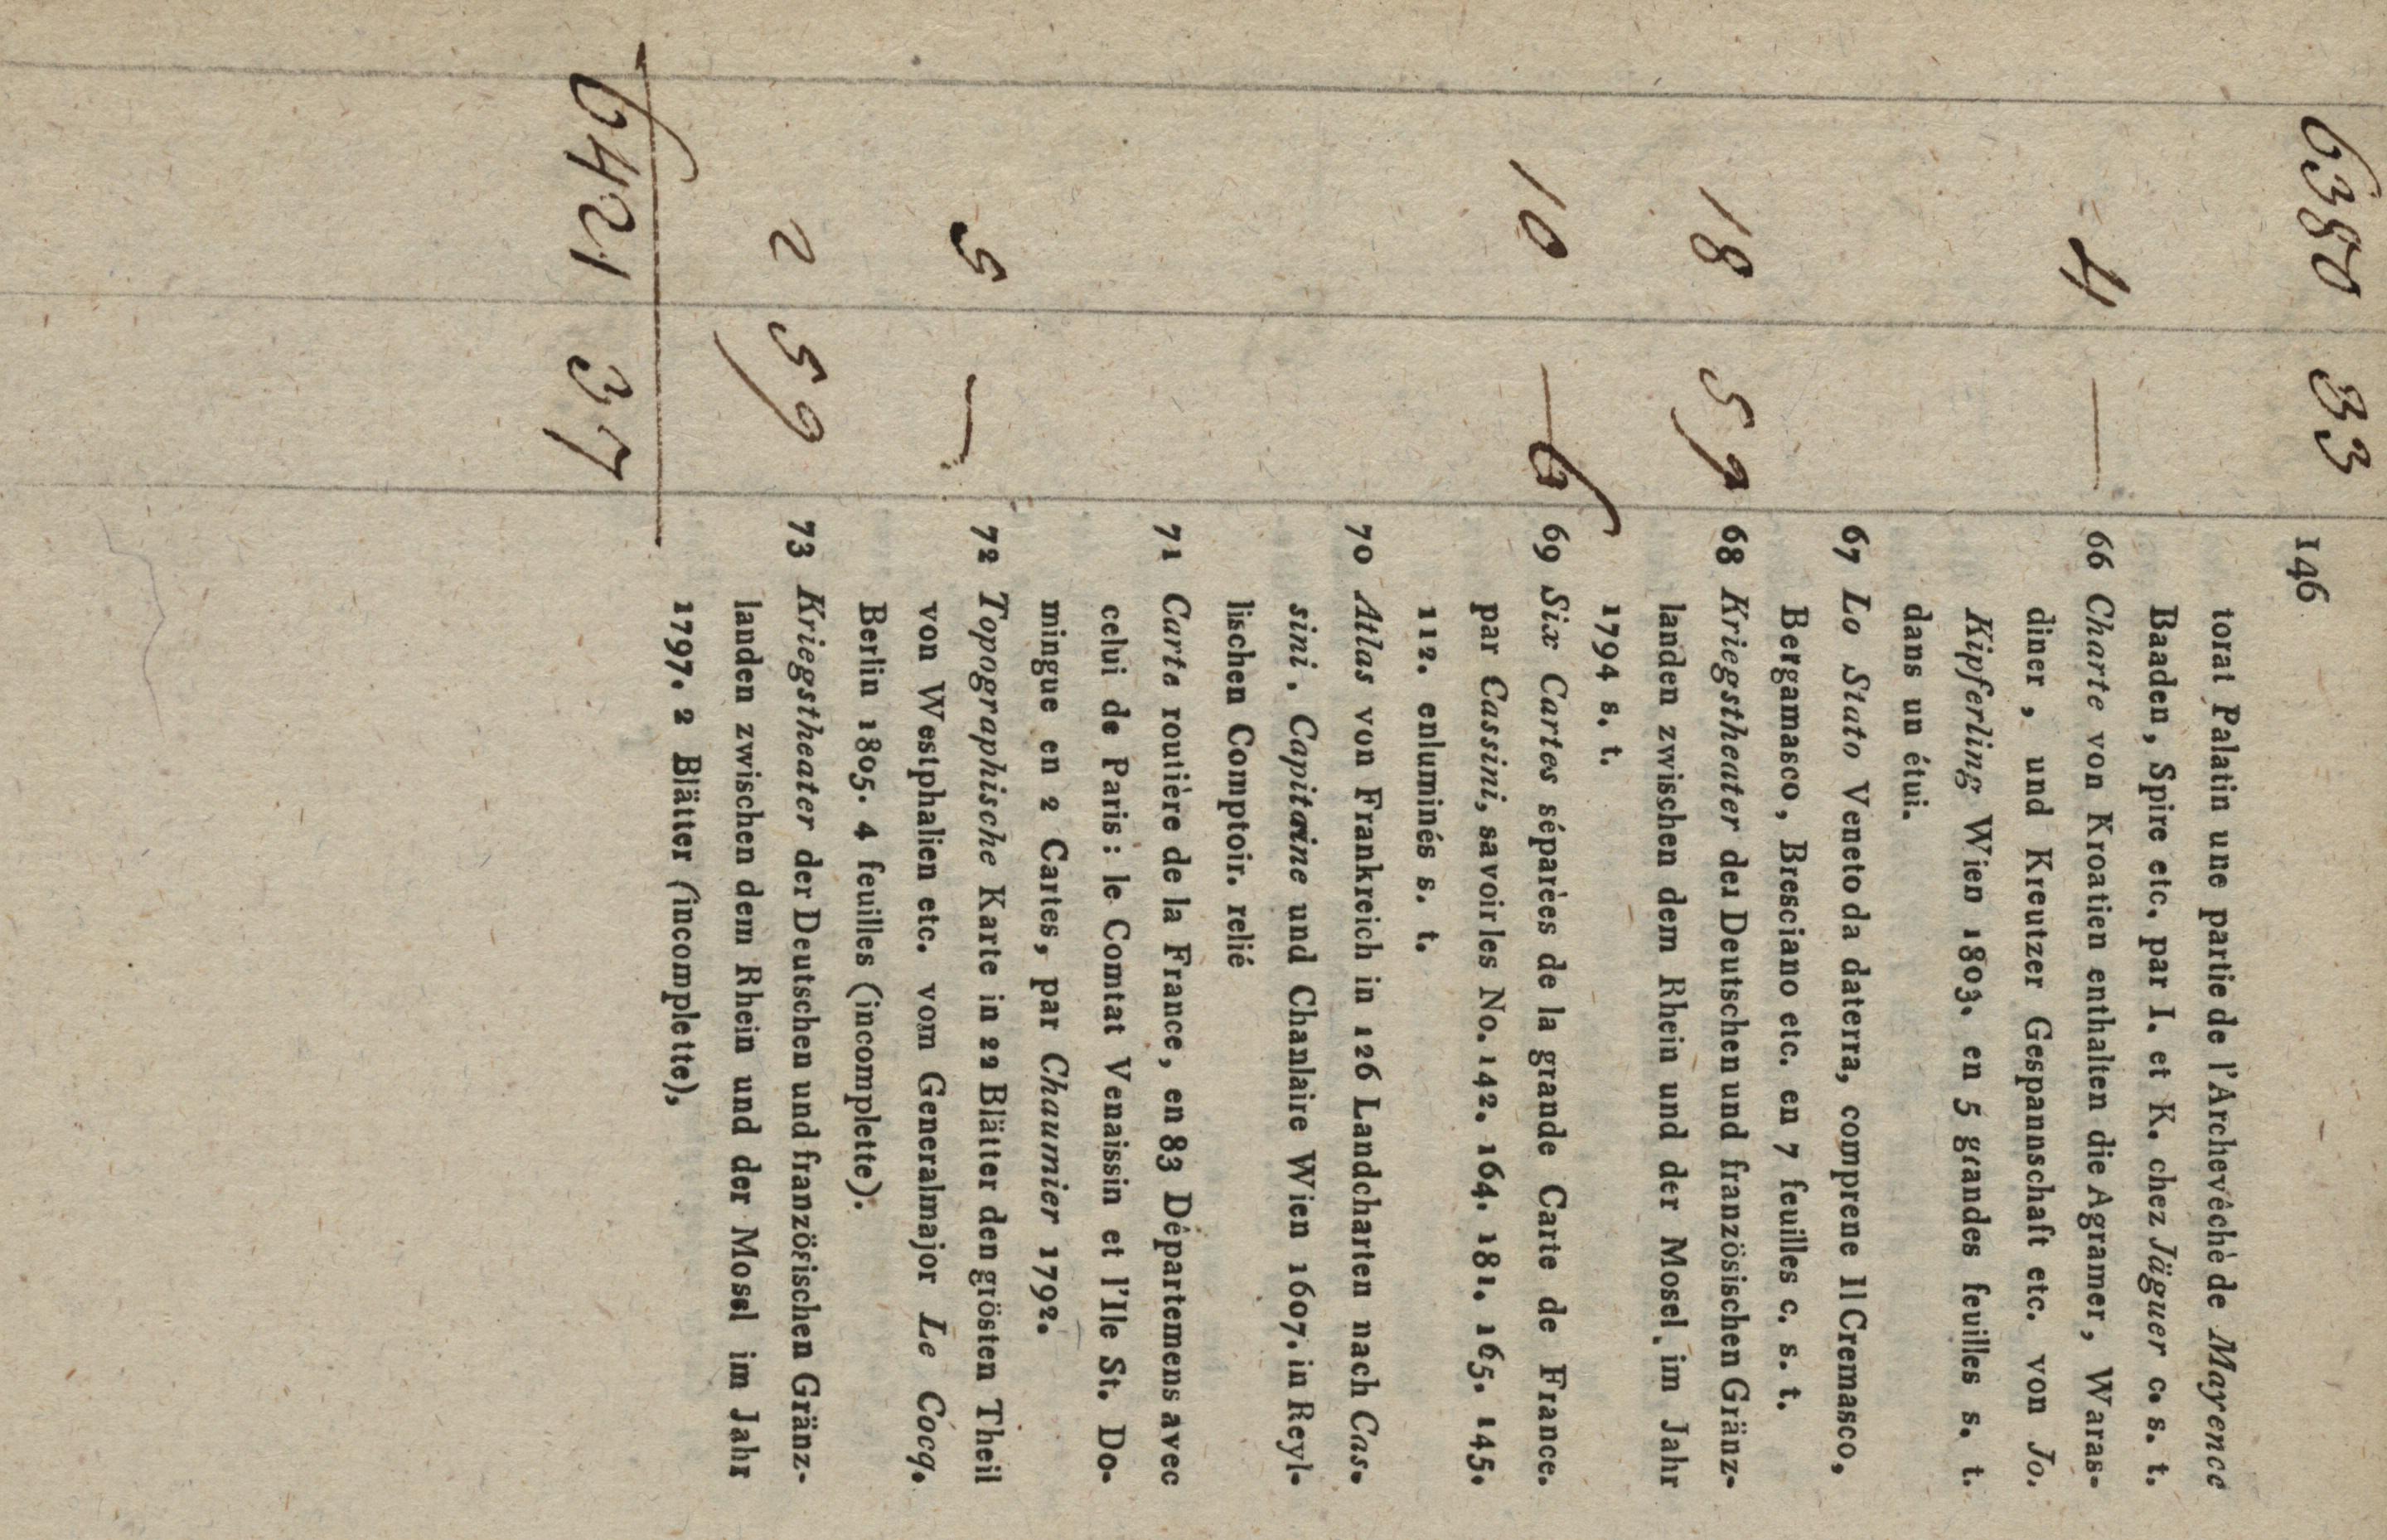 6380 33
146
torat Palatin une partie de l'Archevêchè de Mayence
Baaden, Spire etc. par I. et K. chez Jäguer c. s. t.
4 — 66 Charte von Kroatien enthalten die Agramer, Waras-
diner, und Kreutzer Gespannschaft etc. von Jo.
Kipferling Wien 1803. en 5 grandes feuilles s. t.
dans un étui.
67 Lo Stato Veneto da daterra, comprene Il Cremasco,
Bergamasco, Bresciano etc. en 7 feuilles c. s. t.
18 59 68 Kriegstheater der Deutschen und französischen Gränz-
landen zwischen dem Rhein und der Mosel, im Jahr
1794 s. t.
10 — 6 69 Six Cartes séparèes de la grande Carte de France.
par Cassini, savoir les No. 142. 164. 181. 165. 145.
112. enluminés s. t.
70 Atlas von Frankreich in 126 Landcharten nach Cas-
sini, Capitaine und Chanlaire Wien 1607. in Reyl-
lischen Comptoir. relié
71 Carte routière de la France, en 83 Départemens avec
celui de Paris: le Comtat Venaissin et l'Ile St. Do-
mingue en 2 Cartes, par Chaumier 1792.
5 — 72 Topographische Karte in 22 Blätter den grösten Theil
von Westphalien etc. vom Generalmajor Le Cocq.
Berlin 1805. 4 feuilles (incomplette).
2 59 73 Kriegstheater der Deutschen und französischen Gränz-
landen zwischen dem Rhein und der Mosel im Jahr
1797. 2 Blätter (incomplette),
6421 37